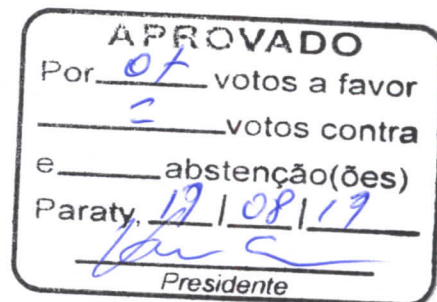 APROVADO
Por 07 votos a favor
= votos contra
e ______ abstenção(ões)
Paraty, 19 / 08 / 19
Presidente